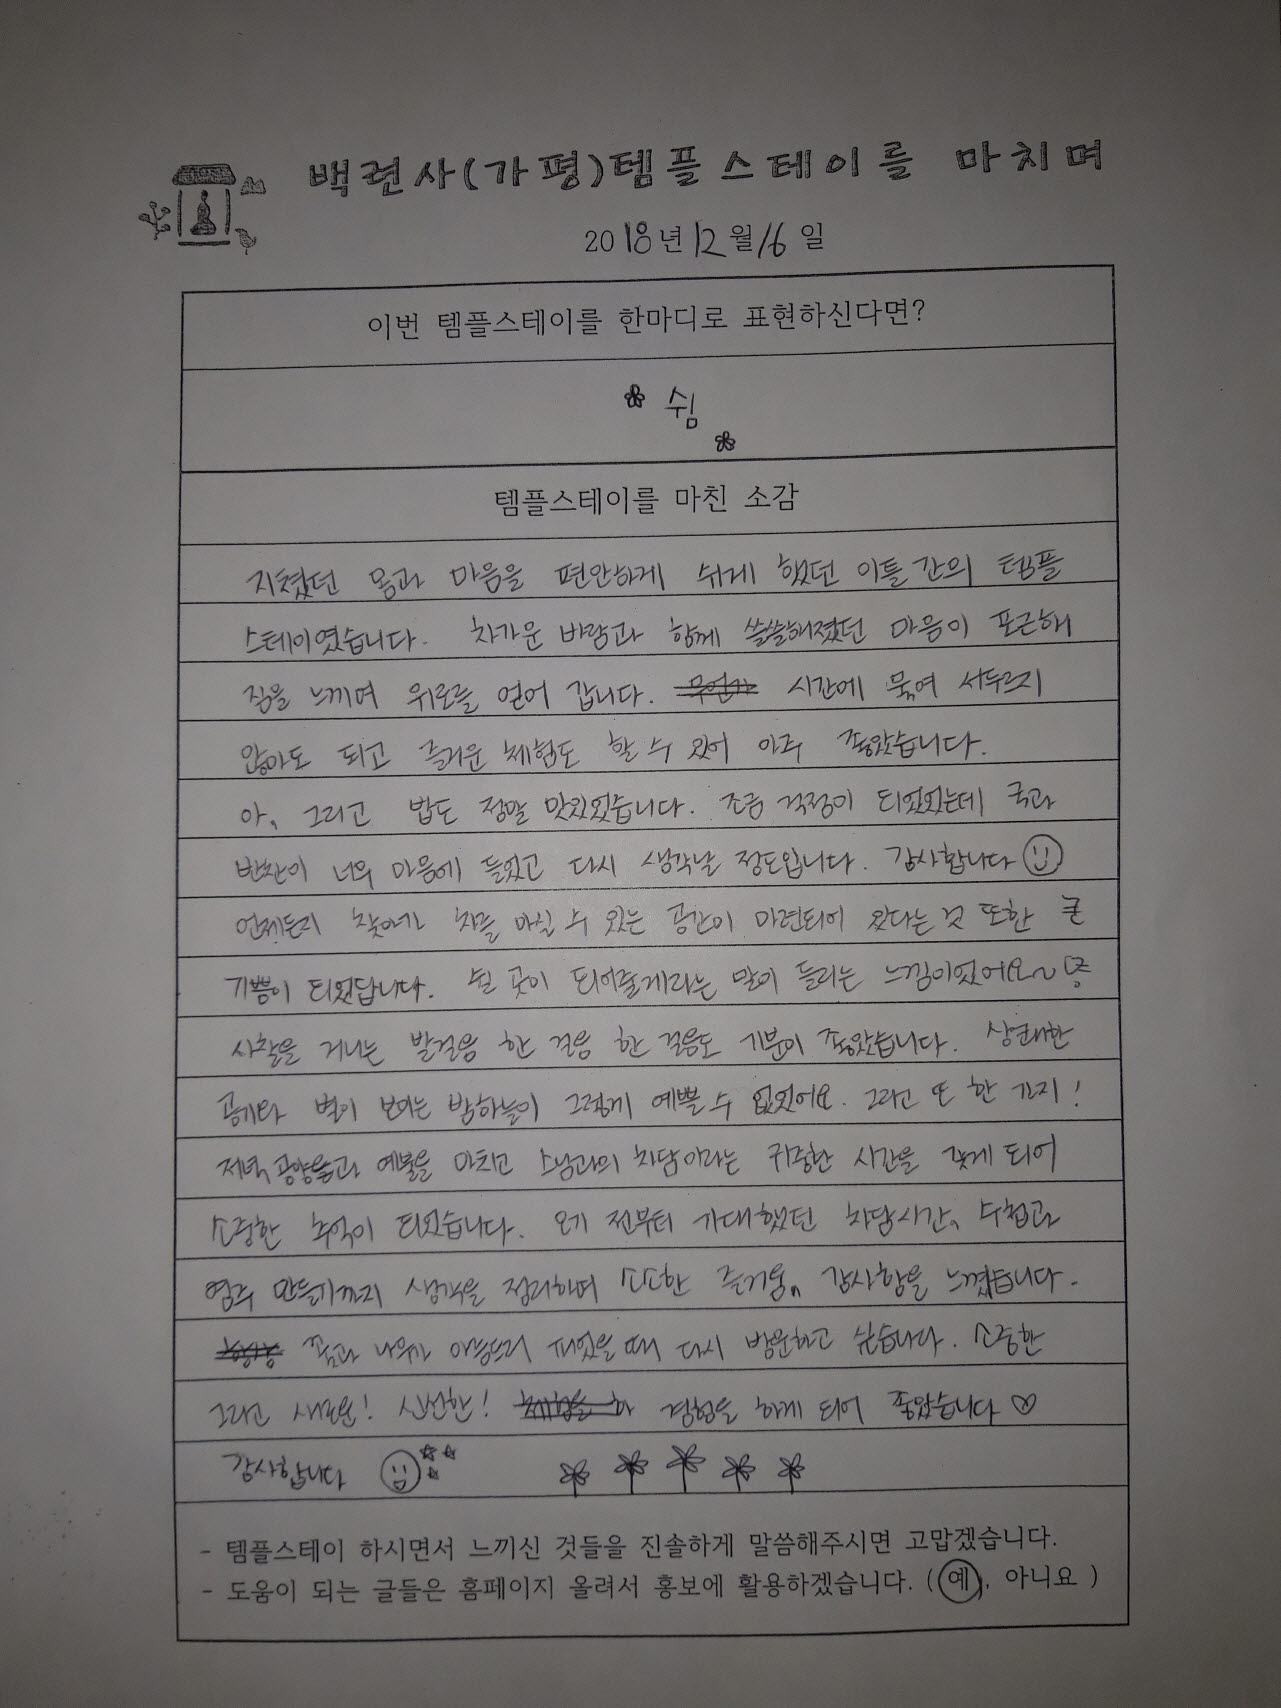 백련사(가평)템플스테이를 마치며
2018년 12월 16일
이번 템플스테이를 한마디로 표현하신다면?
쉼
템플스테이를 마친 소감
지쳤던 몸과 마음을 편안하게 쉬게 했던 이틀 간의 템플
스테이였습니다. 차가운 바람과 함께 쓸쓸해졌던 마음이 포근해
짐을 느끼며 위로를 얻어 갑니다. 무언가 시간에 묶여 서두르지
않아도 되고 즐거운 체험도 할 수 있어 아주 좋았습니다.
아, 그리고 밥도 정말 맛있었습니다. 조금 걱정이 되었었는데 국과
반찬이 너무 마음에 들었고 다시 생각날 정도입니다. 감사합니다
언제든지 찾아가 차를 마실 수 있는 공간이 마련되어 있다는 것 또한 큰
기쁨이 되었답니다. 쉴 곳이 되어줄게라는 말이 들리는 느낌이었어요~
사찰을 거니는 발걸음 한 걸음 한 걸음도 기분이 좋았습니다. 상쾌한
공기와 별이 보이는 밤하늘이 그렇게 예쁠 수 없었어요. 그리고 또 한 가지!
저녁 공양과 예불을 마치고 스님과의 차담이라는 귀중한 시간을 갖게 되어
소중한 추억이 되었습니다. 오기 전부터 기대했던 차담시간, 수첩과
염주 만들기까지 생각을 정리하며 소소한 즐거움, 감사함을 느꼈습니다.
꽃과 나무가 아름드리 피었을 때 다시 방문하고 싶습니다. 소중한
그리고 새로운! 신선한! 체험을 경험을 하게 되어 좋았습니다
감사합니다
- 템플스테이 하시면서 느끼신 것들을 진솔하게 말씀해주시면 고맙겠습니다.
- 도움이 되는 글들은 홈페이지 올려서 홍보에 활용하겠습니다. ( 예, 아니요 )